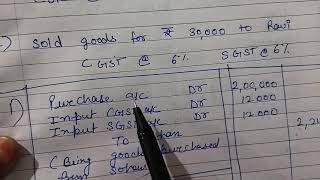 ) Sold goods for ₹ 30,000 to Ravi
CGST @ 6% SGST @ 6%
1) Purchase a/c Dr 2,00,000
Input CGST a/c Dr 12 000
Input SGST a/c Dr 12 000
To 2,2
(Being goods purchased